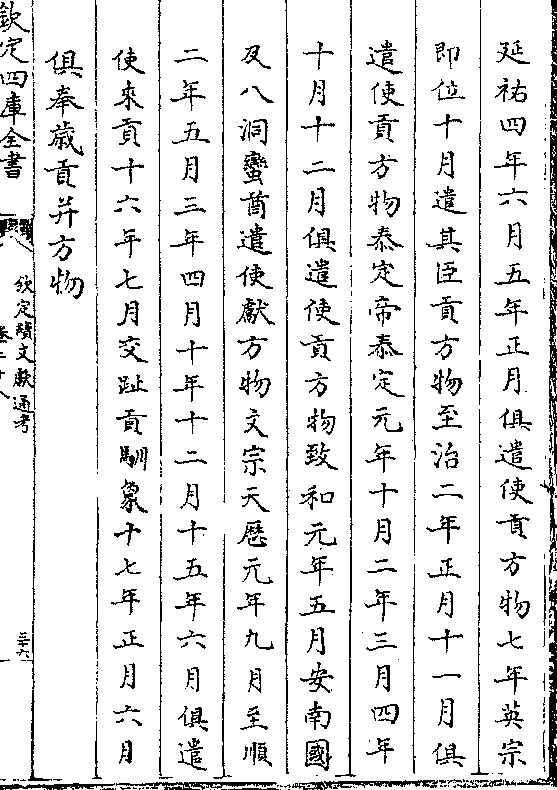 延祐四年六月五年正月俱遣使貢方物七年英宗
即位十月遣其臣貢方物至治二年正月十一月俱
遣使貢方物泰定帝泰定元年十月二年三月四年
十月十二月俱遣使貢方物致和元年五月安南國
及八洞蠻酋遣使獻方物文宗天厯元年九月至順
二年五月三年四月十年十二月十五年六月俱遣
使來貢十六年七月交趾貢馴象十七年正月六月
俱奉歲貢并方物
欽定四庫全書
欽定續文獻通考
卷二十八
三六